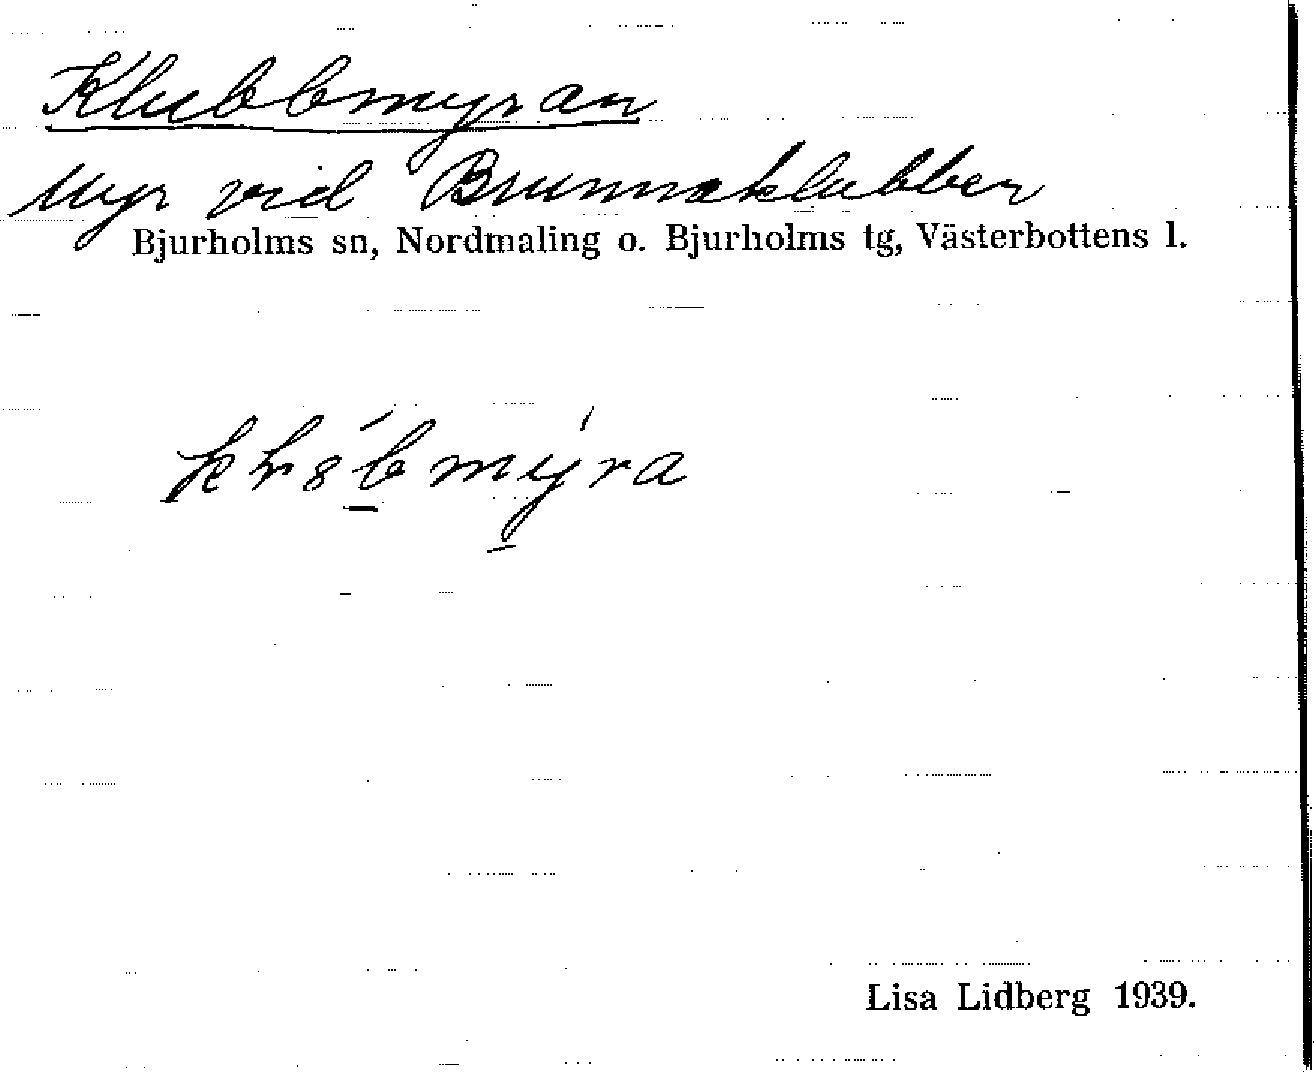 Klubbmyran
Myr vid Brunnsklubben
Bjurholms sn, Nordmaling o. Bjurholms tg, Västerbottens l.
Lisa Lidberg 1939.